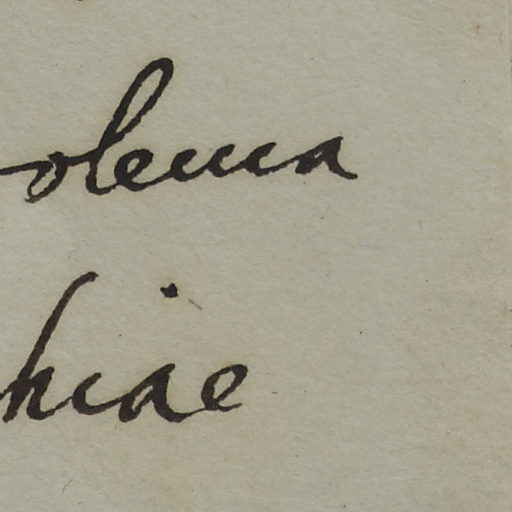 olema
hiae